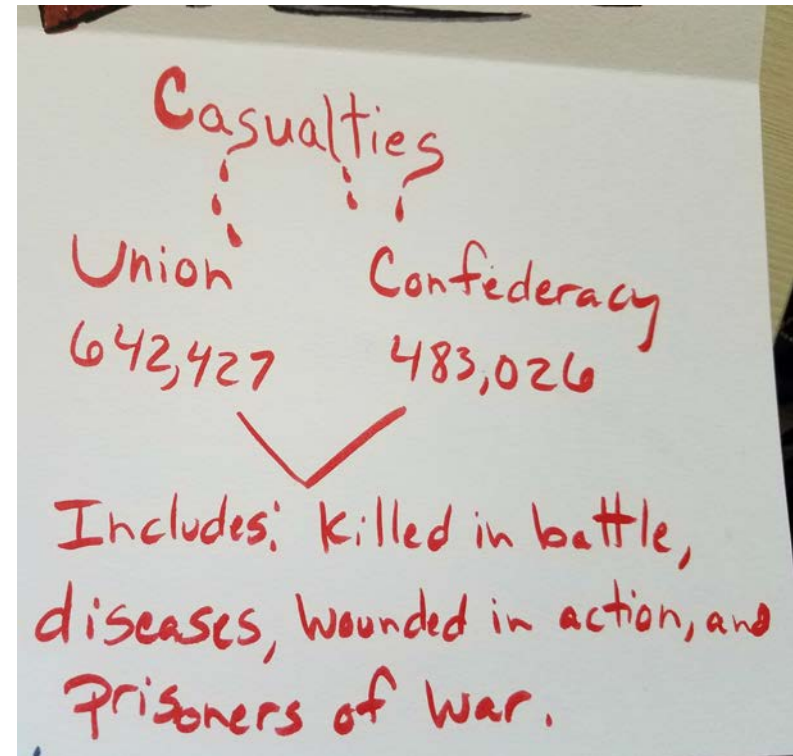 Casualties
Union Confederacy
642,427 483,026
Includes: Killed in battle,
diseases, wounded in action, and
Prisoners of war.